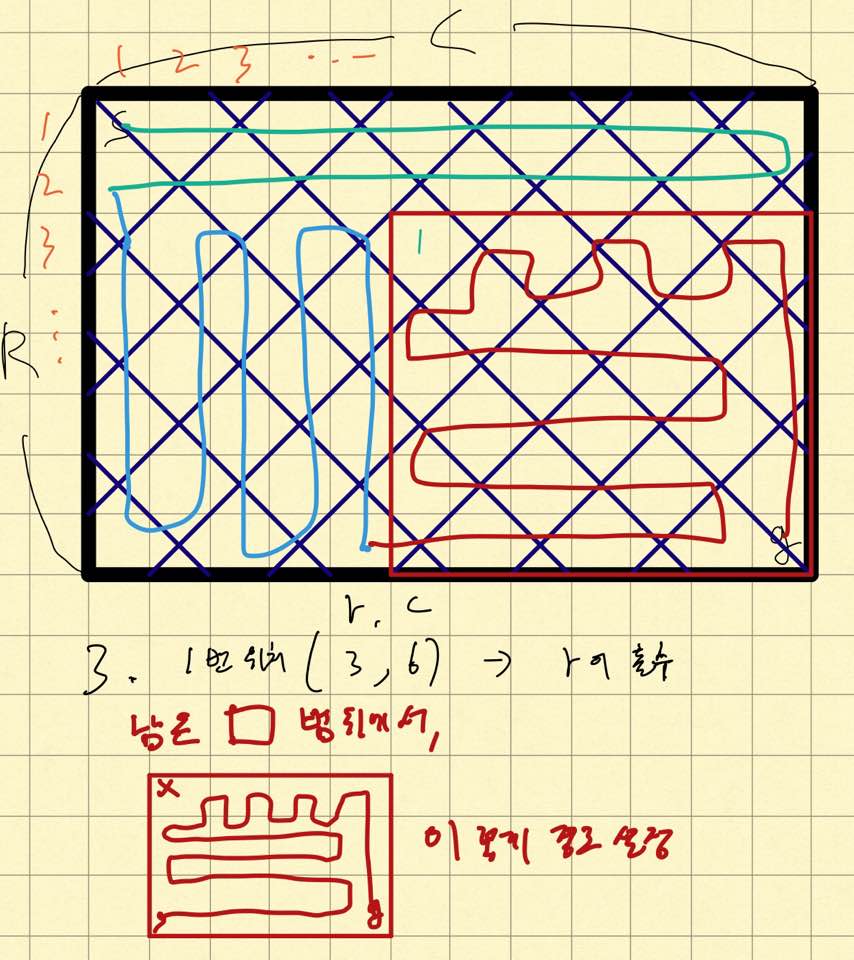 C
1 2 3 ...
S
1
2
3
1
R
g
r, c
3. 1번 위치 (3, 6) → r이 홀수
남은 □ 범위에서,
x
이렇게 경로 설정
s g